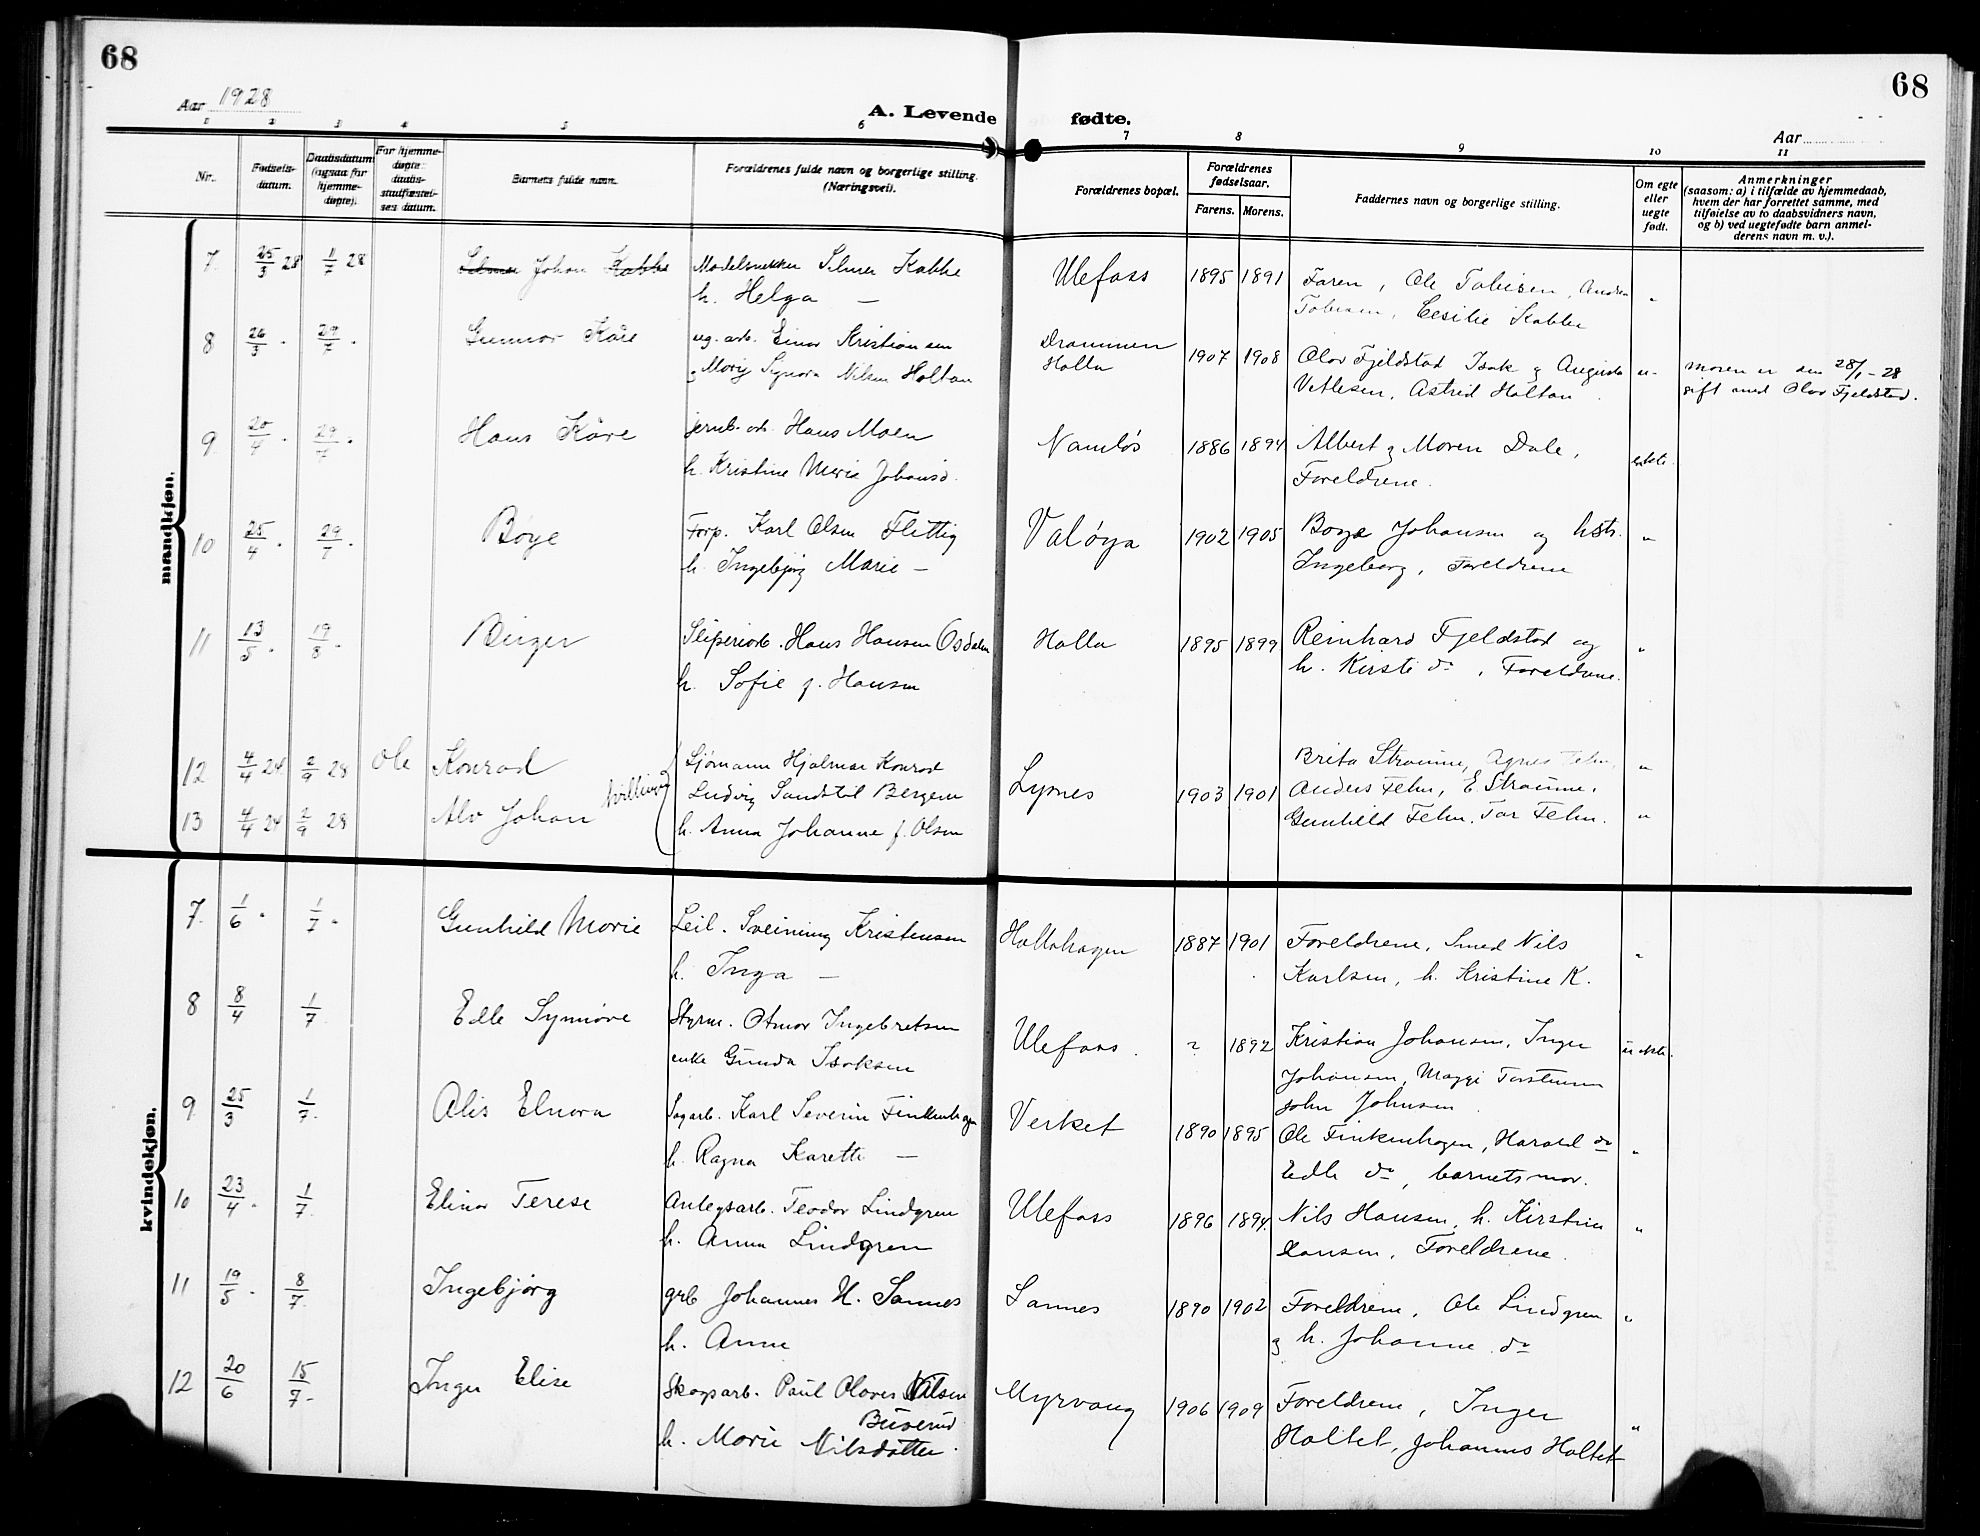 68
68
Aar 1928
A. Levende fødte.
Aar
1 2 3 4 5 6 7 8 9 10 11
Nr.
Fødsels-
datum.
Daabsdatum
(ogsaa for
hjemme-
døpte).
For hjemme-
døpte:
daabs-
stadfæstel-
ses datum.
Barnets fulde navn.
Forældrenes fulde navn og borgerlige stilling.
(Næringsvei).
Forældrenes bopæl.
Forældrenes
fødselsaar.
Farens. Morens.
Faddernes navn og borgerlige stilling.
Om egte
eller
uegte
født.
Anmerkninger
(saasom: a) i tilfælde av hjemmedaab,
hvem der har forrettet samme, med
tilføielse av to daabsvidners navn,
og b) ved uegtefødte barn anmel-
derens navn m. v.).
mandkjøn.
7 25/3 28 1/7 28 Johan Kabbe Selmer Kabbe Ulefoss 1895 1891 Faren, Ole Tobisen,
h. Helga — Cesilie Kabbe "
8 26/3 " 29/7 " Gunnar Kåre ug. arb. Einar Kristiansen Drammen 1907 1908 Olav Fjeldstad Isak g Augusta u- moren er den 28/1-28
Signora Nilsen Holtan Holla Vetlesen, Astrid Holtan. gift med Olav Fjeldstad.
9 20/4 " 29/7 " Hans Kåre jernb. arb. Hans Moen Namløs 1886 1894 Albert g Maren Dale, ekte
h. Kristine Marie Johansd. Foreldrene.
10 25/4 " 29/7 " Böye Forp. Karl Olsen Flittig Valøya 1902 1905 Boye Johansen og hstr. "
h. Ingebjørg Marie — Ingeborg, Foreldrene
11 13/5 " 19/8 " Birger Sliperiarb. Hans Hansen Osdalen Holla 1895 1899 Reinhard Fjeldstad og "
h. Sofie f. Hansen h. Kirsti do, Foreldrene.
12 4/4 24 2/9 28 Ole Konrad Sjömann Hjalmar Konrad Brita Straume, Agnes Fehn, "
tvilling Ludvig Sandstil Bergene Lysnes 1903 1901 Anders Fehn, E. Straume,
13 4/4 24 2/9 28 Alv Johan h. Anna Johanne f. Olsen Gunhild Fehn, Tor Fehn. "
kvindekjøn.
7. 1/6 " 1/7 " Gunhild Marie Leil. Sveinung Kristensen Hollahagen 1887 1901 Foreldrene, Smed Nils "
h. Inga — Karlsen, h. Kristine K.
8 8/4 1/7 Edle Synnöve Styrm. Otmar Ingebretsen Ulefoss. ? 1892 Kristian Johansen, Inger uekte.
enke Gunda Isaksen Johansen, Maggi
John Johnsen
9 25/3 1/7 Alis Elnora Sagarb. Karl Severin Finkenhagen Verket 1890 1895 Ole Finkenhagen, Harald do "
h. Ragna Karette — Edle do, barnets mor.
10 23/4 " 1/7 Elinor Terese Anlegsarb. Teodor Lindgren Ulefoss 1896 1894 Nils Hansen, h. Kirstine "
h. Anna Lindgren Hansen, Foreldrene.
11 19/5 " 8/7 Ingebjörg grb Johannes H. Sannes Sannes 1890 1902 Foreldrene, Ole Lindgren "
h. Anne g h. Johanne do
12 20/6 15/7 Inger Elise Skogsarb. Paul Olaves Nilsen Myrvang 1906 1909 Foreldrene, Inger "
Buverud
h. Marie Nilsdatter. Holtet, Johannes Holtet